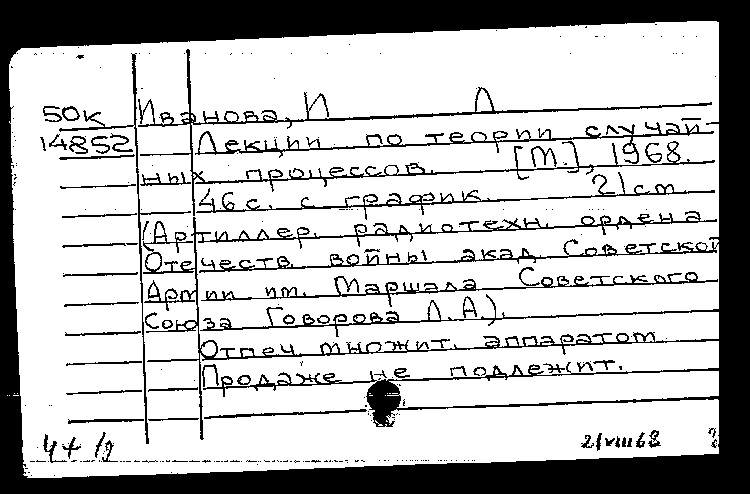 50к Иванова, И Л
14852 Лекции по теории случай-
ных процессов. [М.], 1968.
46 с. с график. 21 cm
(Артиллер. радиотехн. ордена
Отечеств. войны акад Советской
Армии им. Маршала Советского
Союза Говорова Л. А.).
Отпеч. множит. аппаратом
Продаже не подлежит.
21 VIII 68